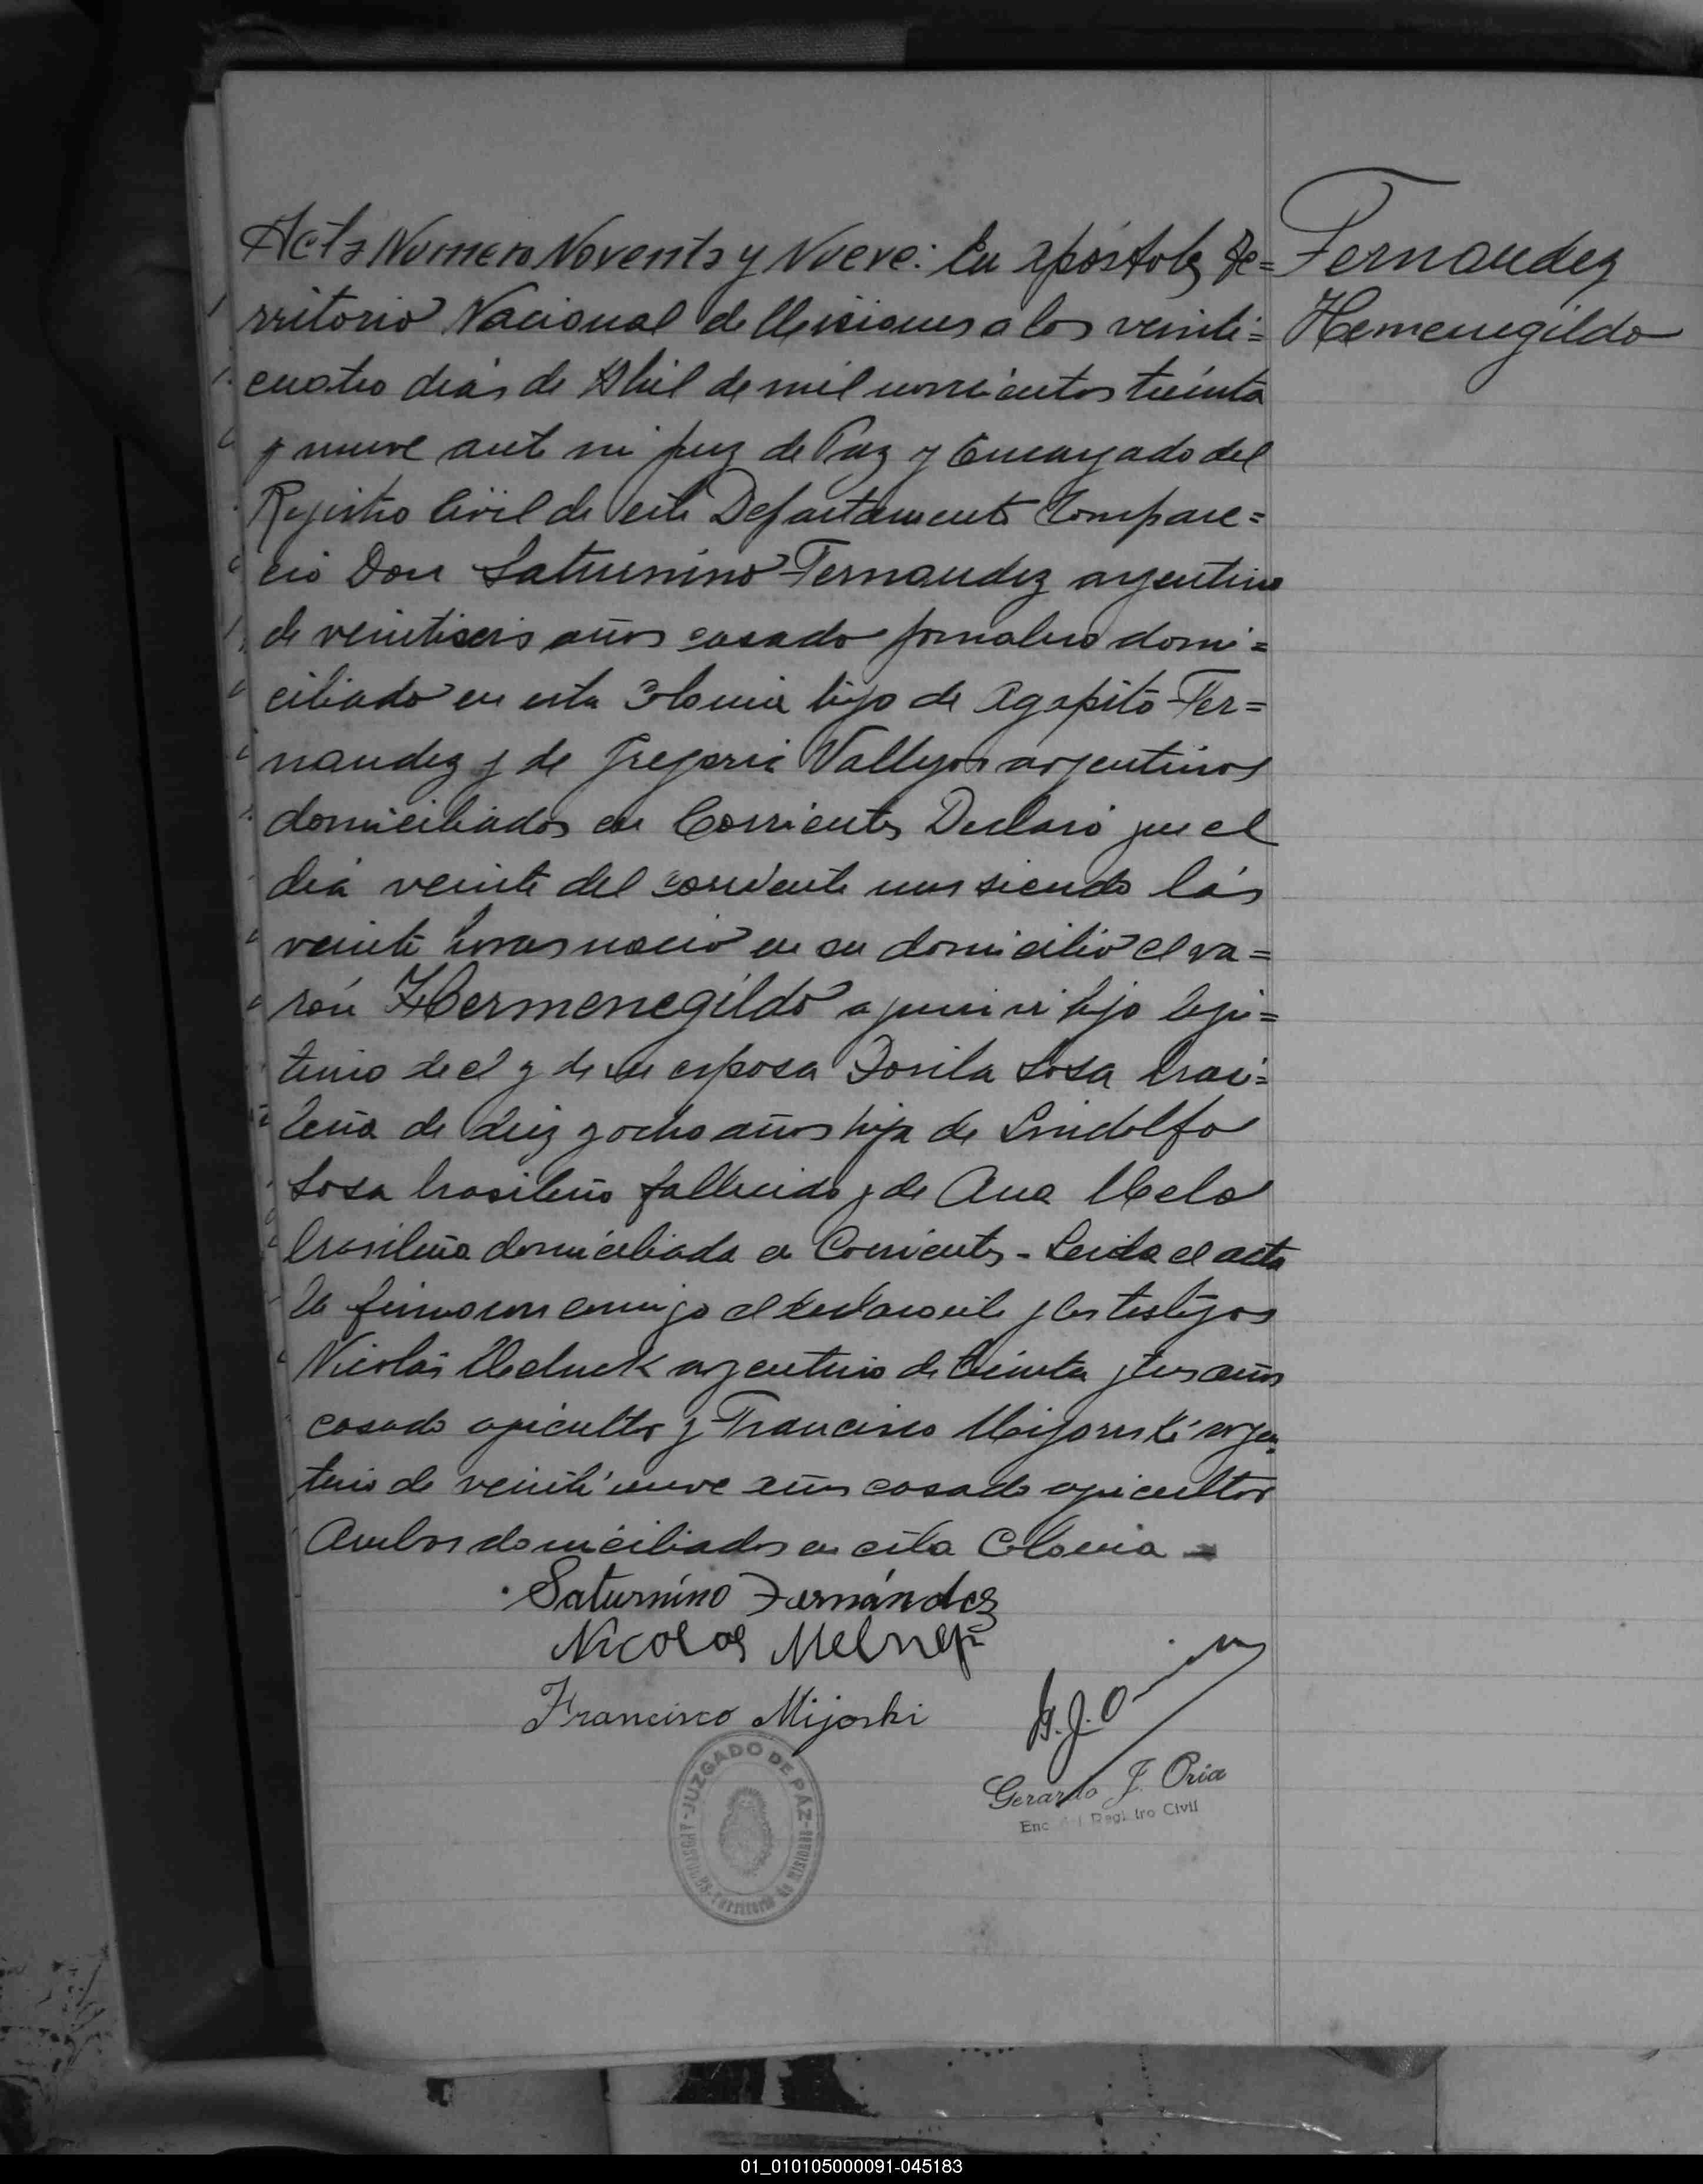 Acta Numero Noventa y Nueve: En Apóstoles Te=
rritorio Nacional de Misiones a los veinti=
cuatro dias de Abril de mil novecientos treinta
y nueve ante mi Juez de Paz y Encargado del
Registro Civil de este Departamento Compare=
ció Don Saturnino Fernandez argentino
de veintiseis años casado jornalero domi=
ciliado en esta Colonia hijo de Agapito Fer=
nandez y de Gregoria Vallejos argentinos
domiciliados en Corrientes Declaró que el
dia veinte del corriente mes siendo las
veinte horas nació en su domicilio el va=
rón Hermenegildo a quien vi hijo legi=
timo de el y de su esposa Dorila Sosa brasi=
leña de diez y ocho años hija de Lindolfo
Sosa brasileño fallecido y de Ana Melo
brasileña domiciliada en Corrientes - Leida el acta
la firmaron conmigo el declarante y los testigos
Nicolás Melnek argentino de treinta y tres años
casado agricultor y Francisco Migorski argen
tino de veinti nueve años casado agricultor
Ambos domiciliados en esta Colonia -
Fernandez
Hemenegildo
Saturnino Fernández
Nicolas
Francisco Mijoski
Gerardo J. Oria
Enc. del Registro Civil
JUZGADO DE PAZ
APOSTOLES - Territorio de MISIONES
01_010105000091-045183